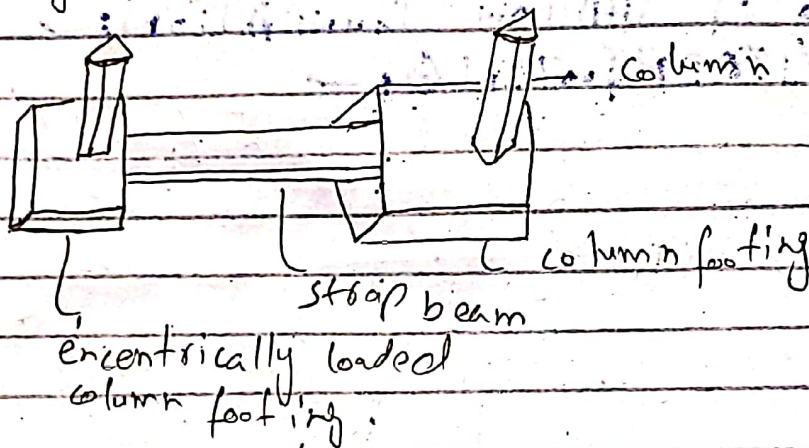 column
column footing
strap beam
encentrically loaded
column footing.